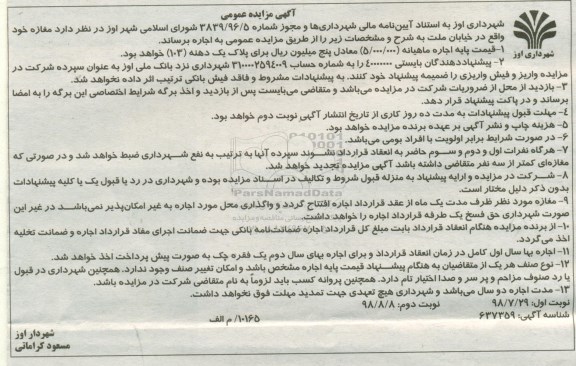 آگهی مزایده عمومی
شهرداری اوز به استناد آیین‌نامه مالی شهرداری‌ها و مجوز شماره ۳۸۳۹/۹۶/۵ شورای اسلامی شهر اوز در نظر دارد مغازه خود
واقع در خیابان ملت به شرح و مشخصات زیر را از طریق مزایده عمومی به اجاره برساند.
۱-قیمت پایه اجاره ماهیانه (۵/۰۰۰/۰۰۰) معادل پنج میلیون ریال برای پلاک یک دهنه (۱۰۳) خواهد بود.
۲- پیشنهاددهندگان بایستی ۴۰۰۰۰۰۰۰ را به شماره حساب ۳۱۰۰۰۲۵۹۴۰۰۹ شهرداری نزد بانک ملی اوز به عنوان سپرده شرکت در
مزایده واریز و فیش واریزی را ضمیمه پیشنهاد خود کنند. به پیشنهادات مشروط و فاقد فیش بانکی ترتیب اثر داده نخواهد شد.
۳- بازدید از محل از ضروریات شرکت در مزایده می‌باشد و متقاضی می‌بایست پس از بازدید و اخذ برگه شرایط اختصاصی این برگه را به امضا
برساند و در پاکت پیشنهاد قرار دهد.
۴- مهلت قبول پیشنهادات به مدت ده روز کاری از تاریخ انتشار آگهی نوبت دوم خواهد بود.
۵- هزینه چاپ و نشر آگهی بر عهده برنده مزایده خواهد بود.
۶- در صورت شرایط برابر اولویت با افراد بومی می‌باشد.
۷- هرگاه نفرات اول و دوم و سوم حاضر به انعقاد قرارداد نشوند سپرده آنها به ترتیب به نفع شهرداری ضبط خواهد شد و در صورتی که
مغازه‌ای کمتر از سه نفر متقاضی داشته باشد آگهی مزایده تجدید خواهد شد.
۸- شرکت در مزایده و ارایه پیشنهاد به منزله قبول شروط و تکالیف در اسناد مزایده بوده و شهرداری در رد یا قبول یک یا کلیه پیشنهادات
بدون ذکر دلیل مختار است.
۹- مغازه مورد نظر ظرف مدت یک ماه از عقد قرارداد اجاره افتتاح گردد و واگذاری محل مورد اجاره به غیر امکان‌پذیر نمی‌باشد در غیر این
صورت شهرداری حق فسخ یک طرفه قرارداد اجاره را خواهد داشت.
۱۰- از برنده مزایده هنگام انعقاد قرارداد بابت مبلغ کل قرارداد اجاره ضمانت‌نامه بانکی جهت ضمانت اجرای مفاد قرارداد اجاره و ضمانت تخلیه
اخذ می‌گردد.
۱۱- اجاره بها سال اول کامل در زمان انعقاد قرارداد و برای اجاره بهای سال دوم یک فقره چک به صورت پیش پرداخت اخذ خواهد شد.
۱۲- نوع صنف هر یک از متقاضیان به هنگام پیشنهاد قیمت پایه اجاره مشخص باشد و امکان تغییر صنف وجود ندارد. همچنین شهرداری در قبول
یا رد صنوف مزاحم و پر سر و صدا اختیار تام دارد. همچنین پروانه کسب باید لزوماً به نام متقاضی شرکت در مزایده باشد.
۱۳- مدت اجاره دو سال می‌باشد و شهرداری هیچ تعهدی جهت تمدید مهلت فوق نخواهد داشت.
نوبت اول: ۹۸/۷/۲۹ نوبت دوم: ۹۸/۸/۸
شناسه آگهی: ۶۳۷۳۵۹ ۱۰۱۶۵/ م الف
شهردار اوز
مسعود کراماتی
شهرداری اوز
ParsNamadData